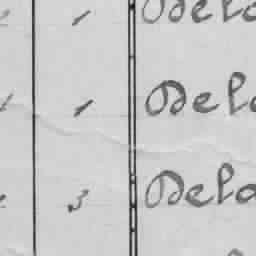 1 Dela
1 Dela
3 Dela